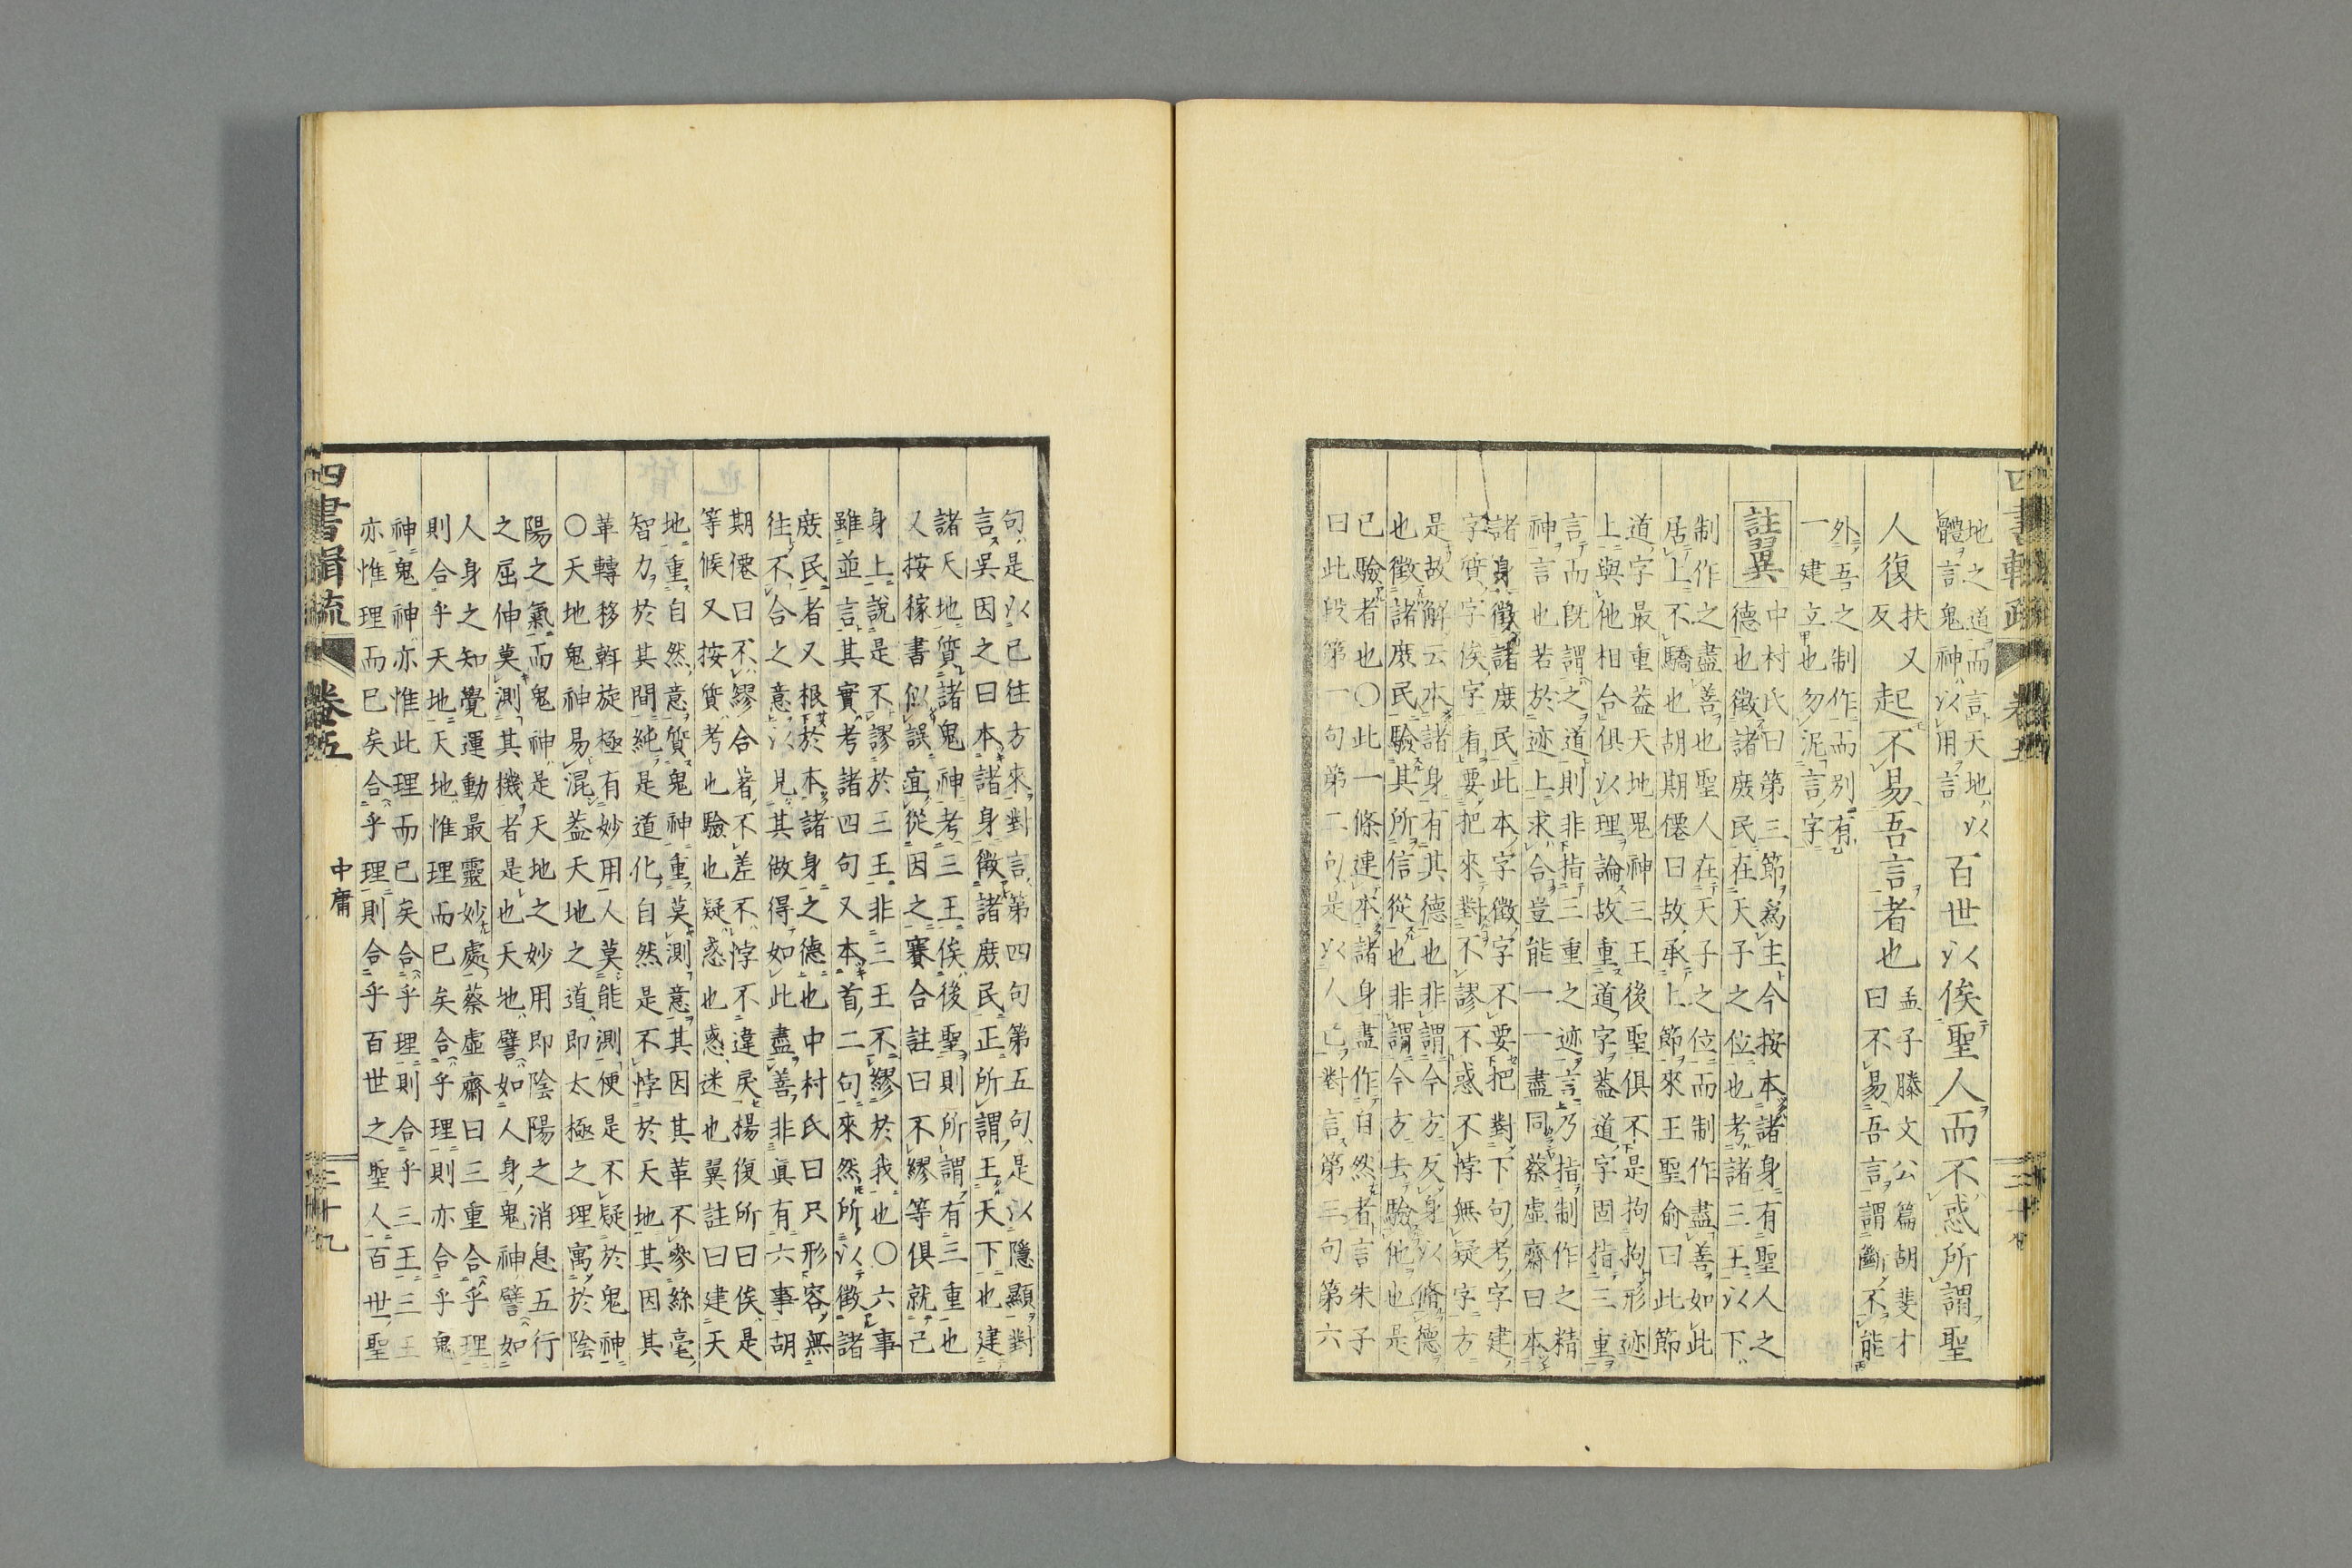 地之道而言天地以
體言鬼神以用言
百世以俟聖人而不惑所謂聖
人復
扶又
反
起不易吾言者也
孟子滕文公篇胡斐才
曰不易吾言謂斷不能
外吾之制作而別有
一建立也勿泥言字
註翼
中村氏曰第三節爲主今按本諸身有聖人之
德也徵諸庶民在天子之位也考諸三王以下
制作之盡善也聖人在天子之位而制作盡善如此
居上不驕也胡期僊曰故承上節來王聖俞曰此節
道字最重蓋天地鬼神三王後聖俱不是拘拘形迹
上與他相合俱以理論故重道字蓋道字固指三重
言而既謂之道則非指三重之迹言乃指制作之精
神言也若於迹上求合豈能一一盡同蔡虛齋曰本
諸身徵諸庶民此本字徵字不要把對下句考字建
字質字俟字看要把來對不謬不惑不悖無疑字方
是故解云本諸身有其德也非謂今方反身以脩德
也徵諸庶民驗其所信從也非謂今方去驗他也是
已驗者也〇此一條連本諸身盡作自然者言朱子
曰此段第一句第二句是以人己對言第三句第六
句是以已往方來對言第四句第五句是以隱顯對
言吳因之曰本諸身徵諸庶民正所謂王天下也建
諸天地質諸鬼神考三王俟後聖則所謂有三重也
又按稼書似誤宜從因之賽合註曰不繆等俱就己
身上說是不謬於三王非三王不繆於我也〇六事
雖並言其實考諸四句又本首二句來然所以徵諸
庶民者又根於本諸身之德也中村氏曰只形容無
往不合之意以見其做得如此盡善非眞有六事胡
期僊曰不繆合著不差不悖不違戾楊復所曰俟是
等候又按質考也驗也疑惑也惑迷也翼註曰建天
地重自然意質鬼神重莫測意其因其革不參絲毫
智力於其間純是道化自然是不悖於天地其因其
革轉移斡旋極有妙用人莫能測便是不疑於鬼神
〇天地鬼神易混蓋天地之道即太極之理寓於陰
陽之氣而鬼神是天地之妙用即陰陽之消息五行
之屈伸莫測其機者是也天地譬如人身鬼神譬如
人身之知覺運動最靈妙處蔡虛齋曰三重合乎理
則合乎天地天地惟理而已矣合乎理則亦合乎鬼
神鬼神亦惟此理而已矣合乎理則合乎三王三王
亦惟理而已矣合乎理則合乎百世之聖人百世聖
四書輯疏
卷五
中庸
三十九